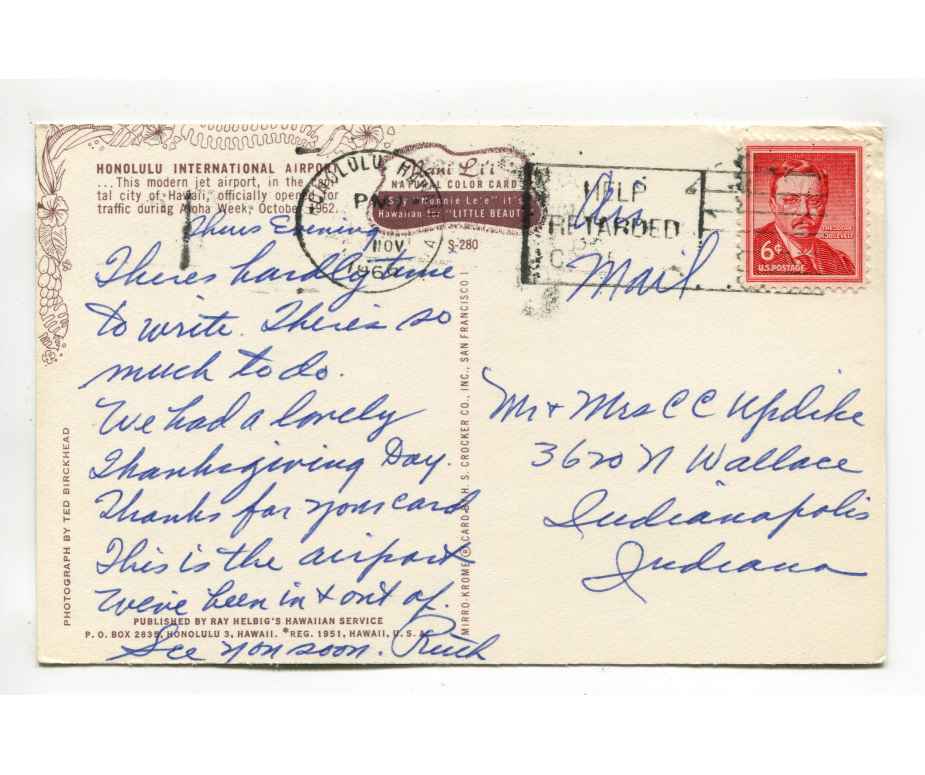 HONOLULU INTERNATIONAL AIRPORT
...This modern jet airport, in the
tal city of Hawaii, officially opened for
traffic during Aloha Week, October 1962.
HONOLULU, HAWAII
PM
NOV
196
NATURAL COLOR CARD
Say "Nonnie Le'e" it's
Hawaiian for "LITTLE BEAUTY"
S-280
HELP
RETARDED
THEODORE
ROOSEVELT
6¢
U.S. POSTAGE
Air
Mail
Thurs Evening
There's hardly time
to write. There's so
much to do.
We had a lovely
Thanksgiving Day.
Thanks for your card
This is the airport
We've been in & out of.
See you soon. Ruth
Mr & Mrs C C Updike
3620 N Wallace
Indianapolis
Indiana
PHOTOGRAPH BY TED BIRCKHEAD
PUBLISHED BY RAY HELBIG'S HAWAIIAN SERVICE
P. O. BOX 2835, HONOLULU 3, HAWAII. *REG. 1951, HAWAII, U. S.
MIRRO-KROME® CARD BY H. S. CROCKER CO., INC., SAN FRANCISCO 1